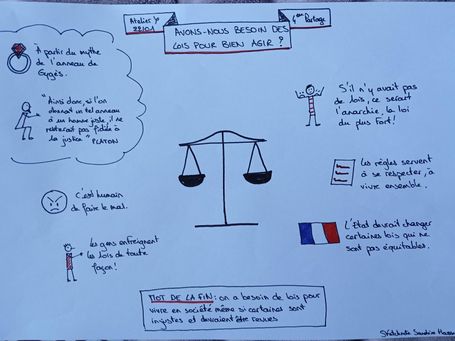 Atelier
AVONS-NOUS BESOIN DES
LOIS POUR BIEN AGIR ?
4ème Partage
À partir du mythe
de l'anneau de
Gygès.
"Ainsi donc, si l'on
donnait un tel anneau
à un homme juste, il ne
resterait pas fidèle à
la justice" PLATON
c'est humain
de faire le mal.
les gens enfreignent
les lois de toute
façon!
S'il n'y avait pas
de lois, ce serait
l'anarchie, la loi
du plus fort!
Les règles servent
à se respecter, à
vivre ensemble.
L'État devrait changer
certaines lois qui ne
sont pas équitables.
MOT DE LA FIN: on a besoin de lois pour
vivre en société même si certaines sont
injustes et devraient être revues
Sandrine